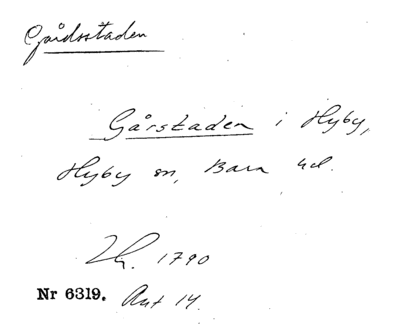 Gårdsstaden
Gårstaden i Hyby,
Hyby sn, Bara hd.
Lh. 1790
Nr 6319. Akt 14.